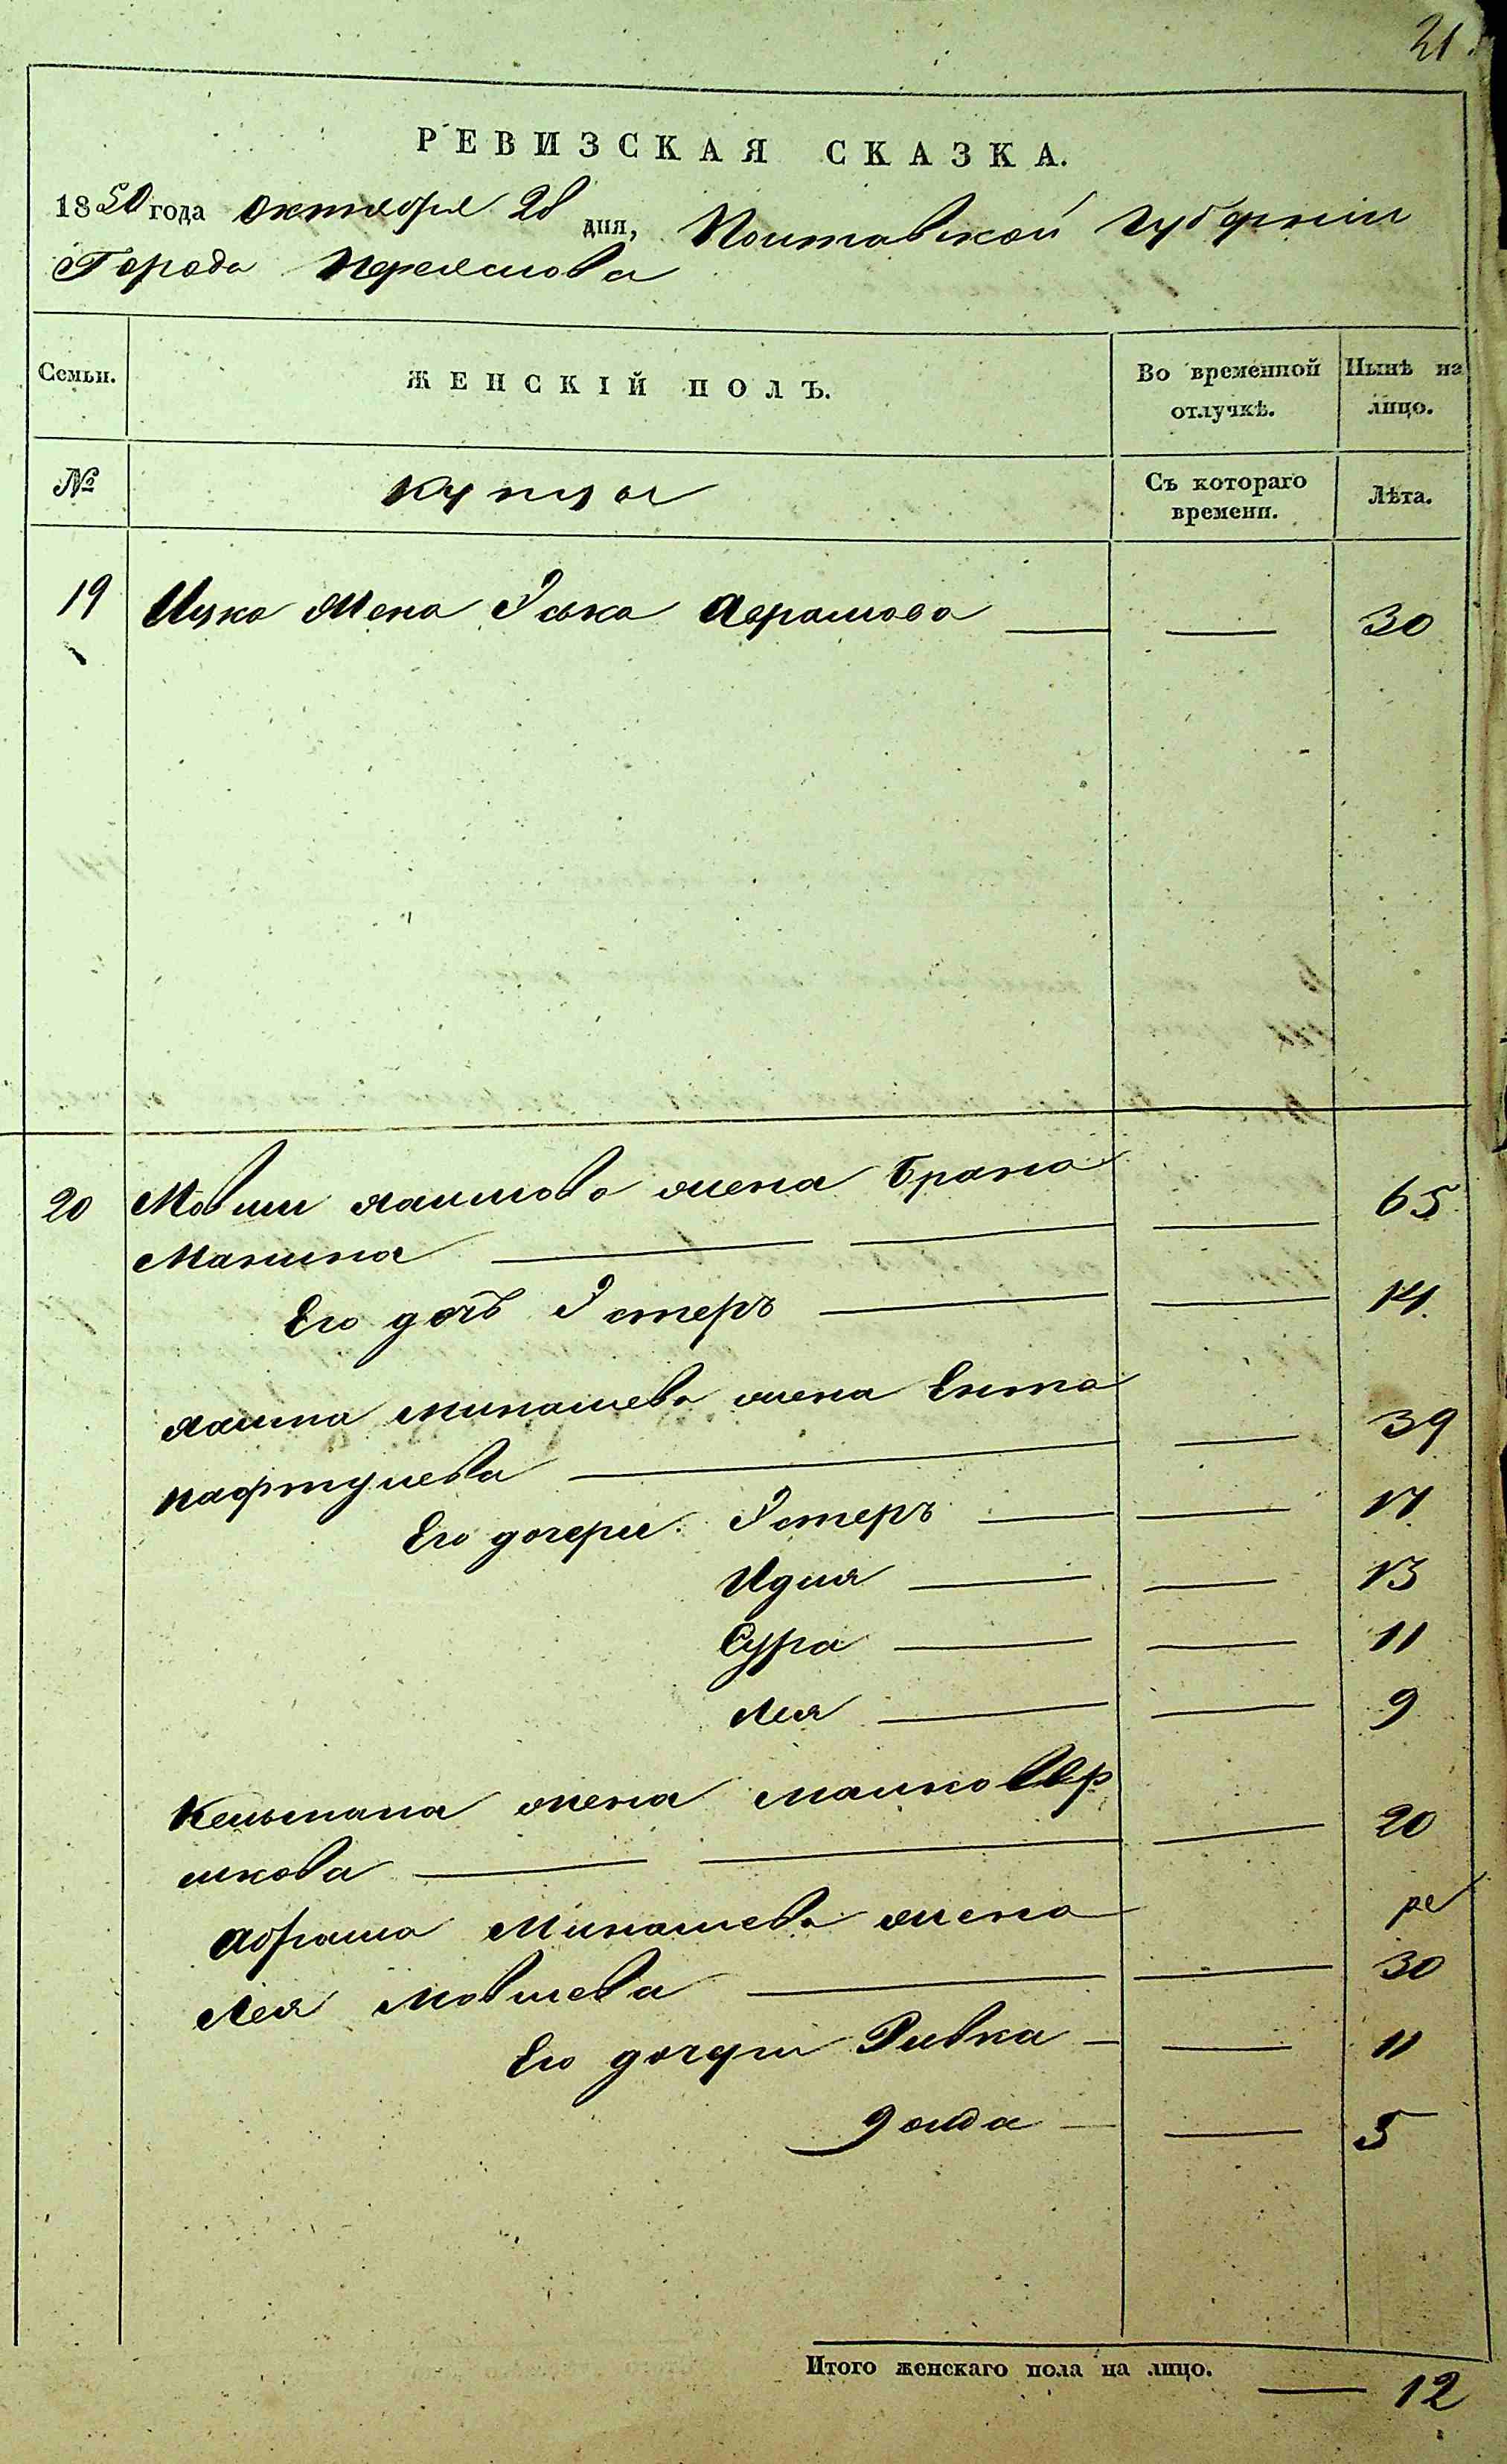 21.
РЕВИЗСКАЯ СКАЗКА.
1850 года Октября 28 дня, Полтавской Губернии
Города Переяслова
Семьи.
ЖЕНСКІЙ ПОЛЪ.
Во временной отлучкѣ.
Нынѣ на лицо.
№
Купцы
Съ котораго времени.
Лѣта.
19 Ицка Жена Эська Абрамова — — 30
20 Мовши Хаимова жена Брана
Манина — — 65
Его дочь Эстеръ — — 14
Хаима Минашева жена Ента
Нафтулева — — 39
Его дочери: Эстеръ — — 17
Идля — — 13
Сура — — 11
Лея — — 9
Кельмана жена Малка
шкова — — 20
Абрама Минашева жена
Лея Мовшева — — 30
Его дочери Ривка — — 11
— — 5
Итого женскаго пола на лицо. — 12